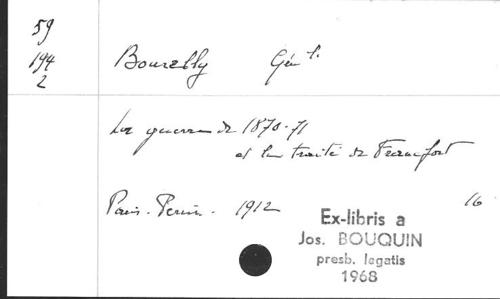 59
194
2
Bourelly Gén l.
La guerre de 1870-71
et le traité de Francfort
Paris. Perrin. 1912
16
Ex-libris a
Jos. BOUQUIN
presb. legatis
1968